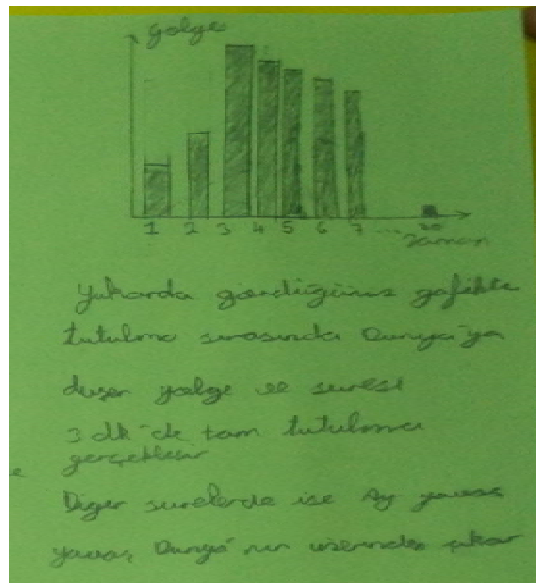 Gölge
1 2 3 4 5 6 7 ... 20
zaman
Yukarda gördüğünüz gafikte
tutulma sırasında Dünya'ya
düşen gölge ve süresi
3 dk'de tam tutulma
gerçekleşir
Diğer sürelerde ise Ay yavaş
yavaş Dünya'nın üzerinden çıkar